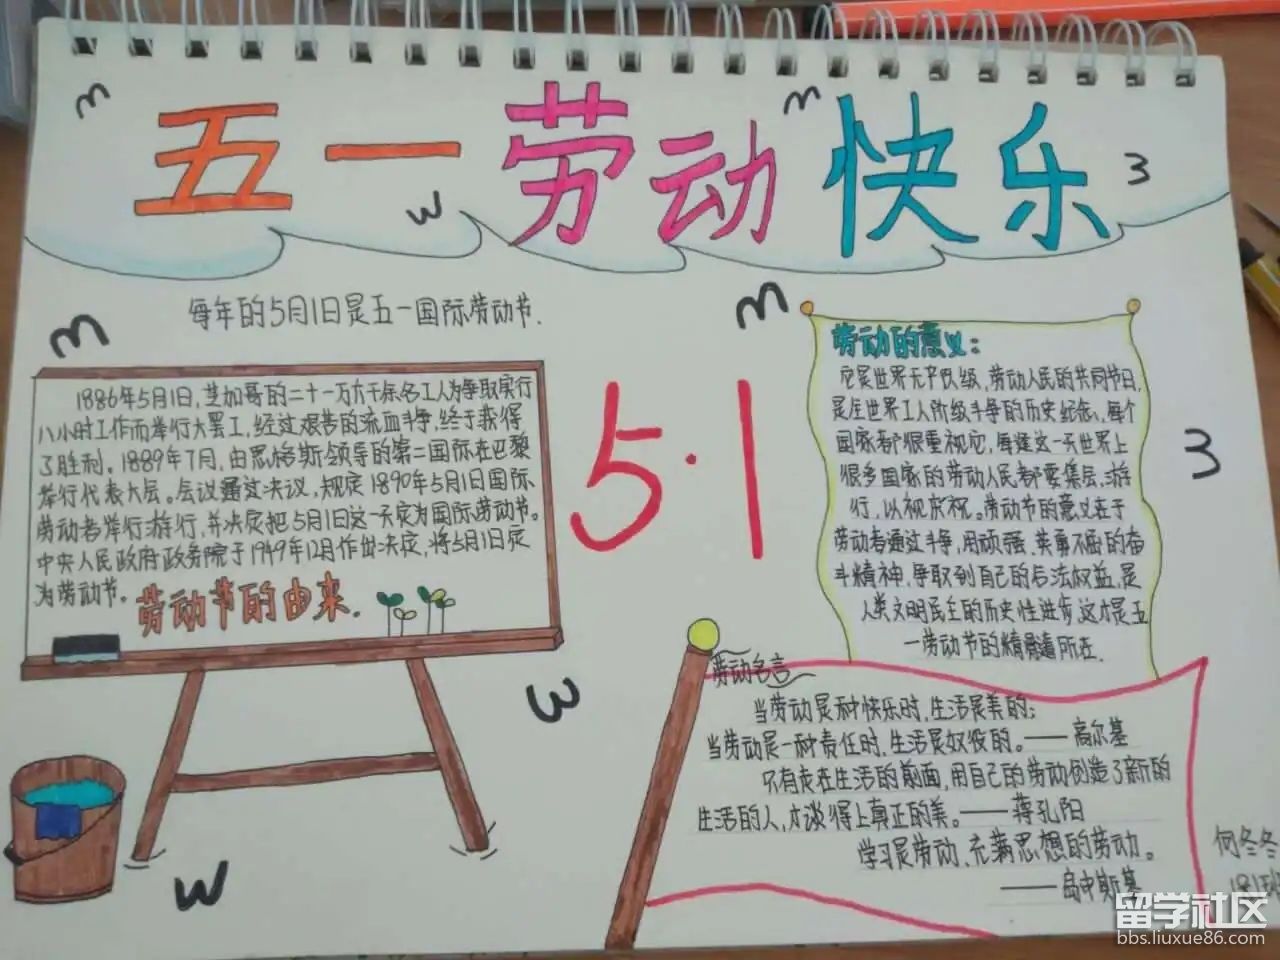 五一劳动快乐
每年的5月1日是五一国际劳动节.
1886年5月1日,芝加哥的二十一万六千余名工人为争取实行
八小时工作而举行大罢工,经过艰苦的流血斗争,终于获得
了胜利。1889年7月,由恩格斯领导的第二国际在巴黎
举行代表大会。会议通过决议,规定1890年5月1日国际
劳动者举行游行,并决定把5月1日这一天定为国际劳动节。
中央人民政府政务院于1949年12月作出决定,将5月1日定
为劳动节。
劳动节的由来.
5·1
劳动的意义:
它是世界无产阶级,劳动人民的共同节日,
是全世界工人阶级斗争的历史纪念,每个
国家都很重视它,每逢这一天世界上
很多国家的劳动人民都要集会,游
行,以视庆祝。劳动节的意义在于
劳动者通过斗争,用顽强、英勇不屈的奋
斗精神,争取到自己的合法权益,是
人类文明民主的历史性进步,这才是五
一劳动节的精髓所在.
劳动名言
当劳动是种快乐时,生活是美的;
当劳动是一种责任时,生活是奴役的。——高尔基
只有走在生活的前面,用自己的劳动创造了新的
生活的人,才谈得上真正的美。——蒋孔阳
学习是劳动、充满思想的劳动。
——乌申斯基
何冬冬
181班
留学社区
bbs.liuxue86.com